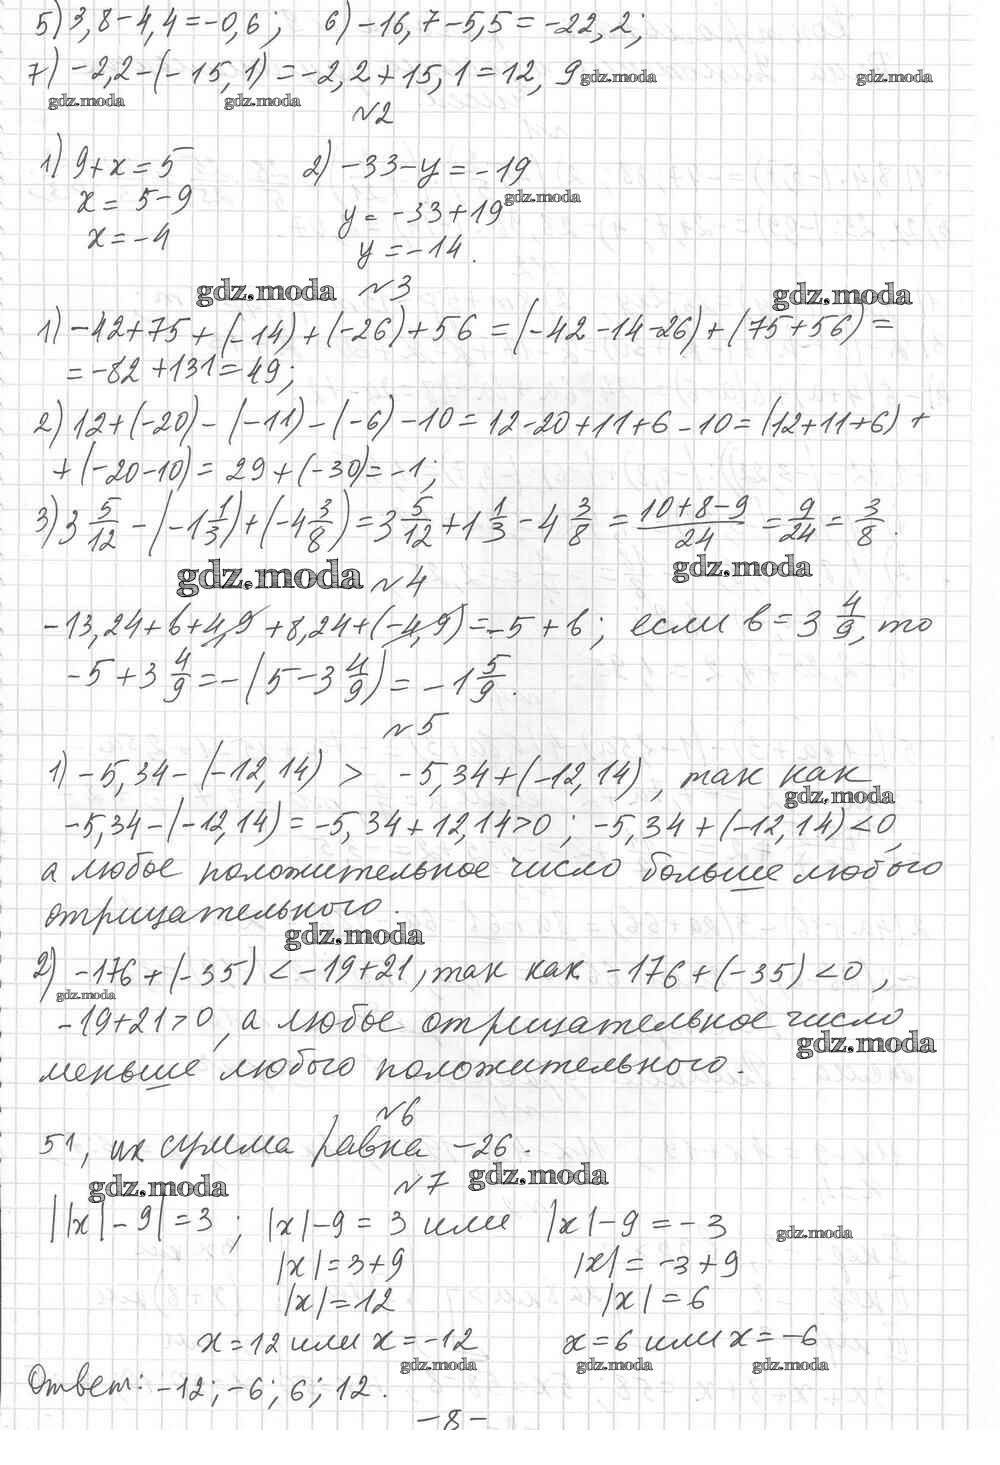 5) 3,8-4,4=-0,6; 6) -16,7-5,5=-22,2;
7) -2,2-(-15,1)=-2,2+15,1=12,9 gdz.moda gdz.moda
gdz.moda gdz.moda
№2
1) 9+x=5 2) -33-y=-19
x=5-9 gdz.moda
y=-33+19
x=-4 y=-14.
gdz.moda №3 gdz.moda
1) -42+75+(-14)+(-26)+56=(-42-14-26)+(75+56)=
=-82+131=49;
2) 12+(-20)-(-11)-(-6)-10=12-20+11+6-10=(12+11+6)+
+(-20-10)=29+(-30)=-1;
3) 3 5/12-(-1 1/3)+(-4 3/8)=3 5/12+1 1/3-4 3/8=(10+8-9)/24=9/24=3/8.
gdz.moda №4 gdz.moda
-13,24+в+4,9+8,24+(-4,9)=-5+в; если в=3 4/9, то
-5+3 4/9=-(5-3 4/9)=-1 5/9.
№5
1) -5,34-(-12,14) > -5,34+(-12,14), так как
gdz.moda
-5,34-(-12,14)=-5,34+12,14>0; -5,34+(-12,14)<0,
а любое положительное число больше любого
отрицательного.
gdz.moda
2) -176+(-35)<-19+21, так как -176+(-35)<0,
gdz.moda
-19+21>0, а любое отрицательное число
gdz.moda
меньше любого положительного.
№6
51, их сумма равна -26.
gdz.moda №7 gdz.moda
||x|-9|=3; |x|-9=3 или |x|-9=-3
gdz.moda
|x|=3+9 |x|=-3+9
|x|=12 |x|=6
x=12 или x=-12 x=6 или x=-6
gdz.moda gdz.moda gdz.moda
Ответ: -12; -6; 6; 12.
-8-